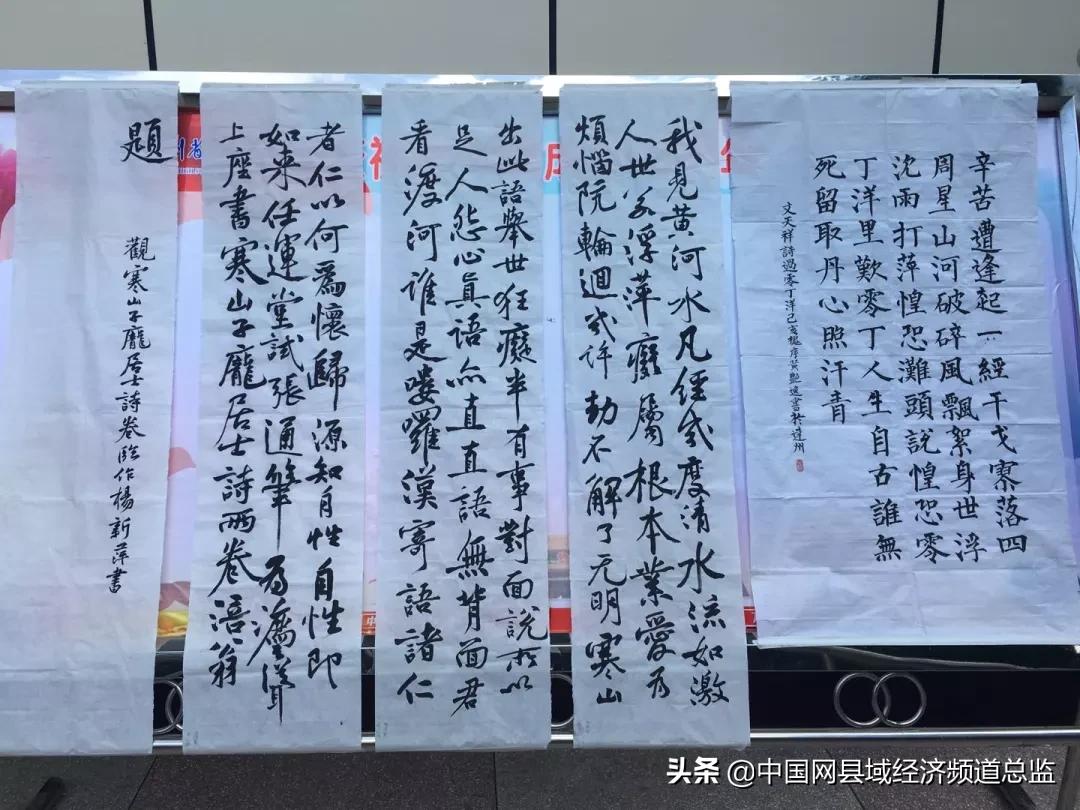 辛苦遭逢起一經干戈寥落四
周星山河破碎風飄絮身世浮
沈雨打萍惶恐灘頭說惶恐零
丁洋里歎零丁人生自古誰無
死留取丹心照汗青
文天祥詩過零丁洋己亥槐序黃艷書於達州
我見黃河水凡經幾度清水流如激
人世若浮萍癡屬根本業愛為
煩惱阬輪迴幾許劫不解了无明寒山
出此語舉世狂癡半有事對面說所以
足人怨心真語亦直直語無背面君
看渡河誰是嘍囉漢寄語諸仁
者仁以何為懷歸源知自性自性即
如来任運堂試張通筆為
上座書寒山子龐居士詩兩卷涪翁
題
觀寒山子龐居士詩卷臨作楊新萍書
头条 @中国网县域经济频道总监